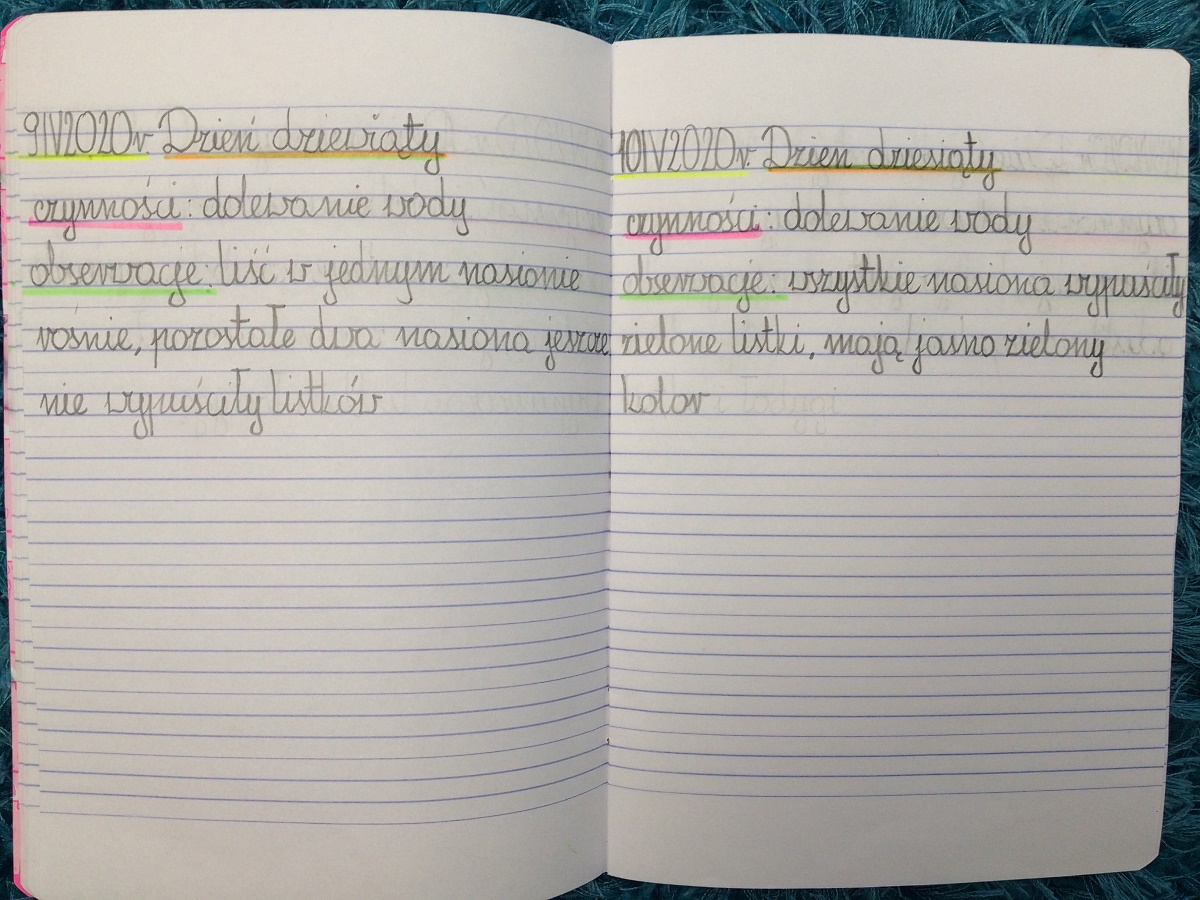 9IV2020r Dzień dziewiąty
czynności: dolewanie wody
obserwacje: liść w jednym nasionie
rośnie, pozostałe dwa nasiona jeszcze
nie wypuściły listków
10IV2020r. Dzień dziesiąty
czynności: dolewanie wody
obserwacje: wszystkie nasiona wypuściły
zielone listki, mają jasno zielony
kolor